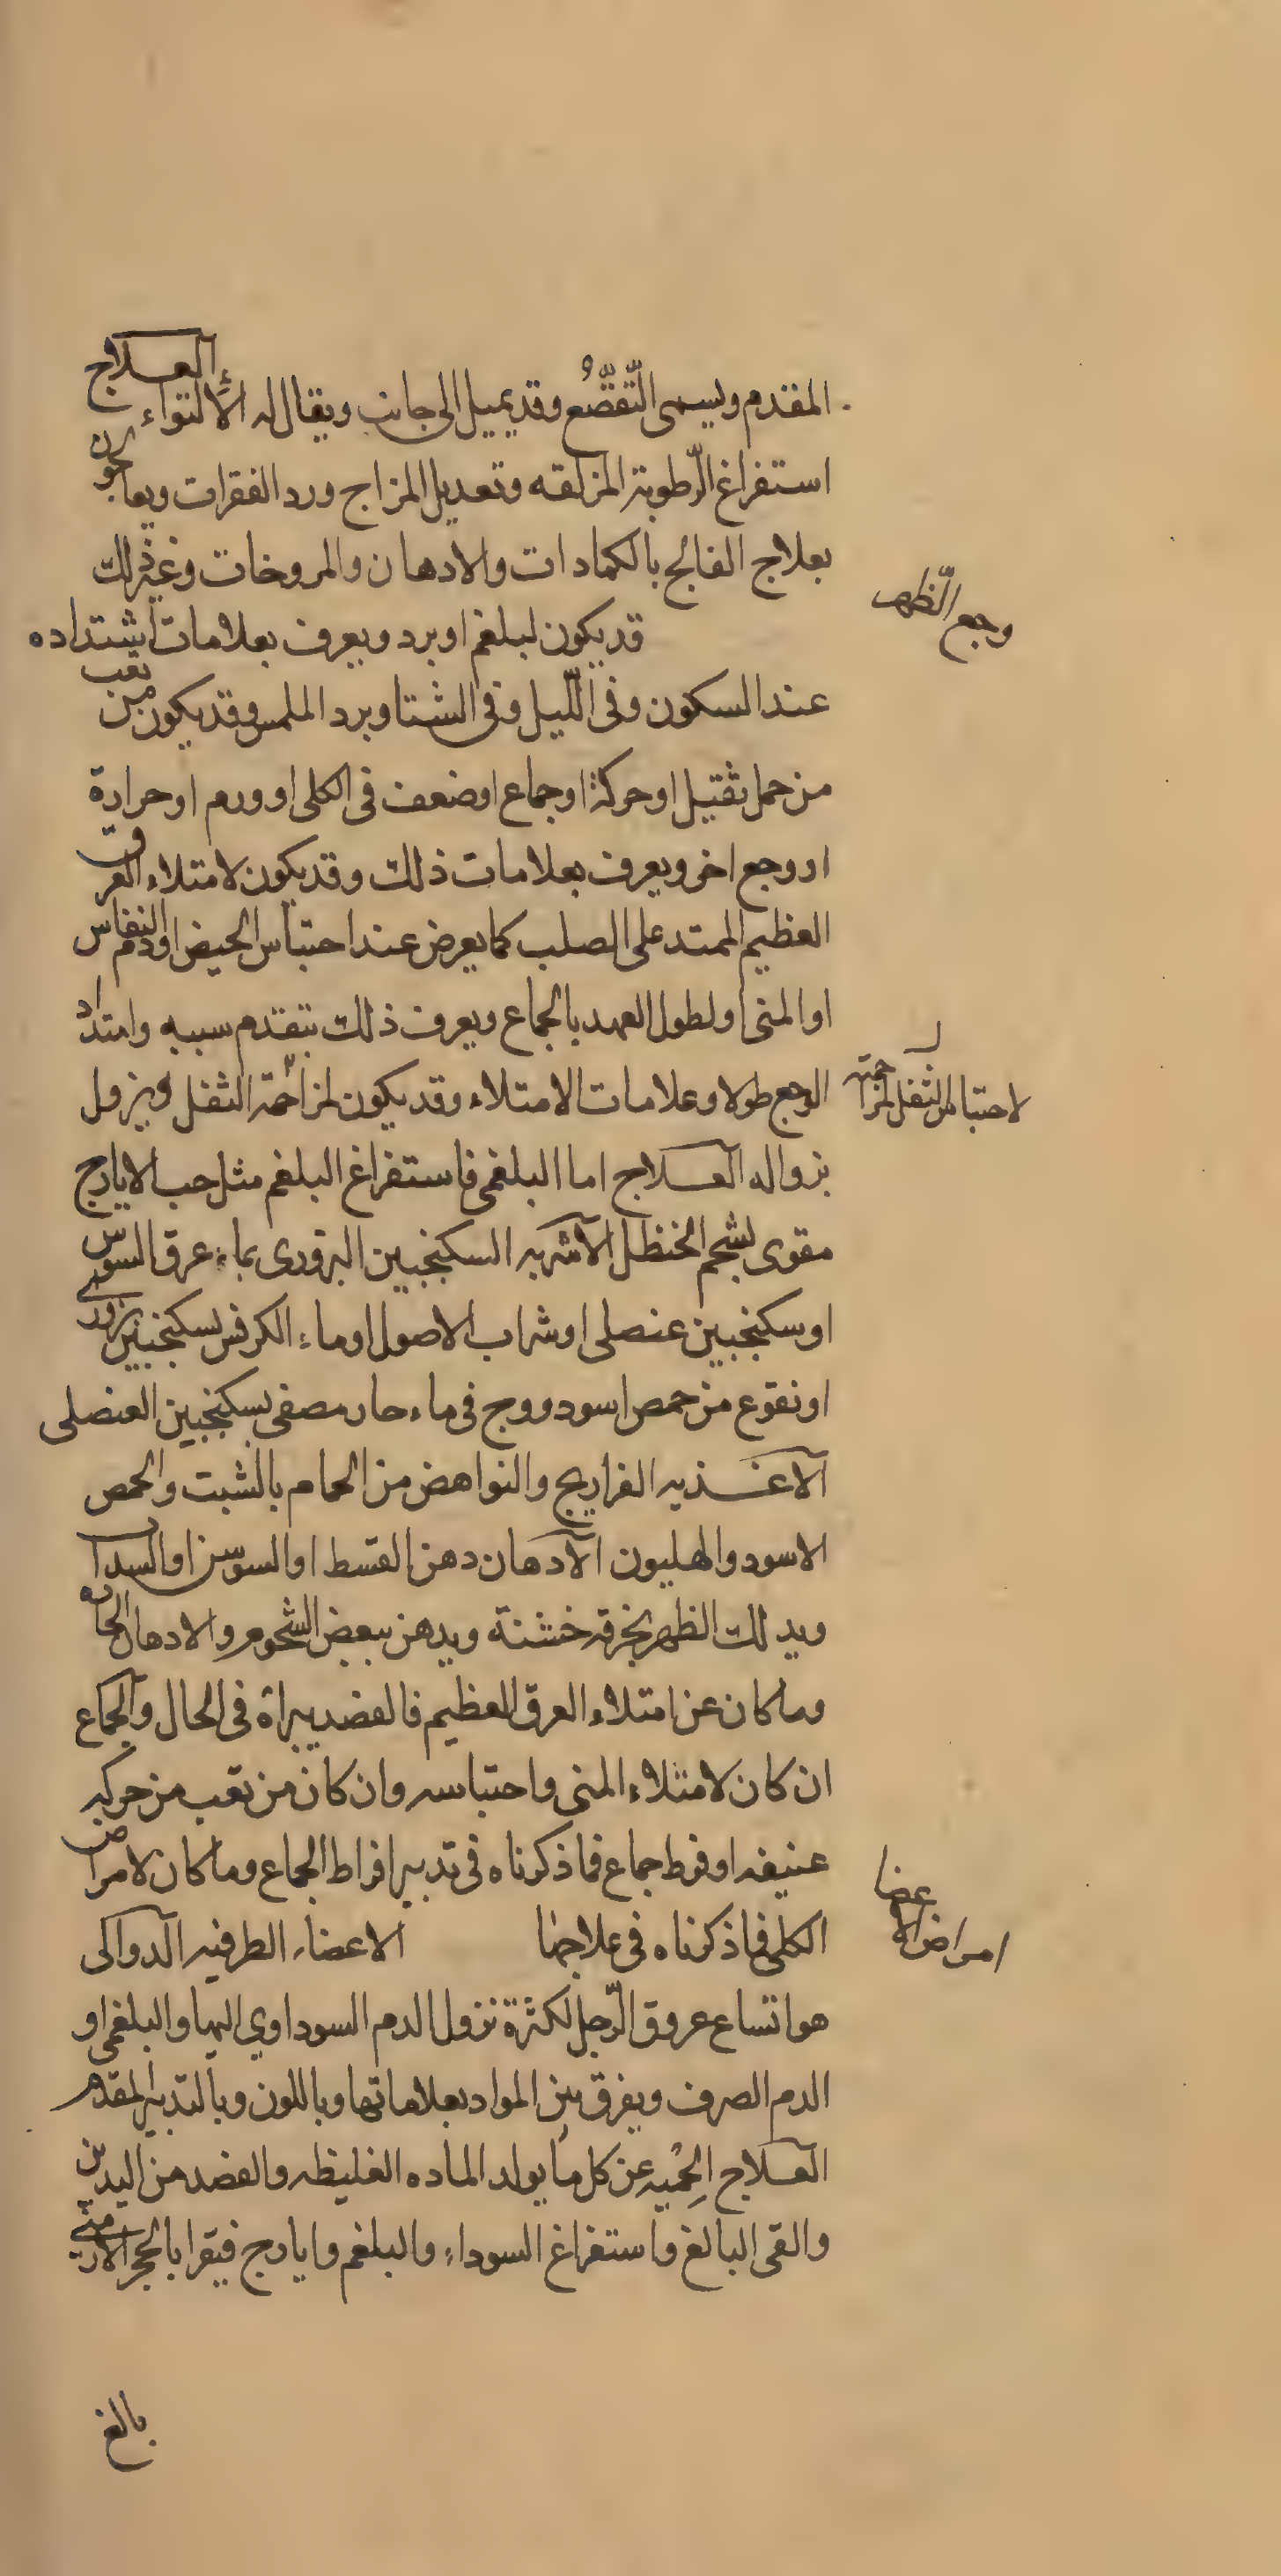 المقدم ويسمى التَّقصُّع وقد يميل الى جانب ويقال له الألتواء العلاج
استفراغ الرّطوبة المزلقه وتعديل المزاج ورد الفقرات ويعالجون
بعلاج الفالج بالكمادات والادهان والمروخات وغير ذلك
وجع الظّهر
قد يكون لبلغم او برد ويعرف بعلامات اشتداده
عند السكون وفى اللّيل وفى الشتا وبرد الملمس وقد يكون من تعب
من حمل ثقيل او حركة او جماع او ضعف فى الكلى او ورم او حرارة
او وجع اخر ويعرف بعلامات ذلك وقد يكون لامتلاء العرق
العظيم الممتد على الصلب كما يعرض عند احتباس الحيض او دم النفاس
او المنى او لطول العهد بالجماع ويعرف ذلك بتقدم سببه وامتداد
الوجع طولا وعلامات الامتلاء وقد يكون لمزاحمة الثفل ويزول
لاحتباس الثفل لمزاحمته
بزواله العلاج اما البلغمى فاستفراغ البلغم مثل حب الايارج
مقوى بشحم الحنظل الآشربه السكنجبين البزورى بماء عرق السوس
او سكنجبين عنصلى او شراب الاصول او ماء الكرفس بسكنجبين بزورى
او نقوع من حمص اسود ووج فى ماء حار مصفى بسكنجبين العنصلى
الآغذيه الفراريج والنواهض من الحمام بالشبت والحمص
الاسود والهليون الآدهان دهن القسط او السوسن او السداب
ويدلك الظهر بخرقه خشنة ويدهن ببعض الشحوم والادهان الحاده
وما كان عن امتلاء العرق العظيم فالفصد يبراة فى الحال والجماع
ان كان لامتلاء المنى واحتباسه وان كان من تعب من حركه
عنيفه او فرط جماع فما ذكرناه فى تدبير افراط الجماع وما كان لامراض
الكلى فما ذكرناه فى علاجها الاعضاء الطرفيه الدوالى
امراض الاعضا
هو اتساع عروق الرّجل لكثرة نزول الدم السوداوي اليها والبلغمى او
الدم الصرف ويفرق بين المواد بعلاماتها وباللون وبالتدبير المقدم
العلاج الحِميه عن كل ما يولد الماده الغليظه والفصد من اليدين
والقى البالغ واستفراغ السوداء والبلغم وايارج فيقرا بالحجر الارمنى
بالغ